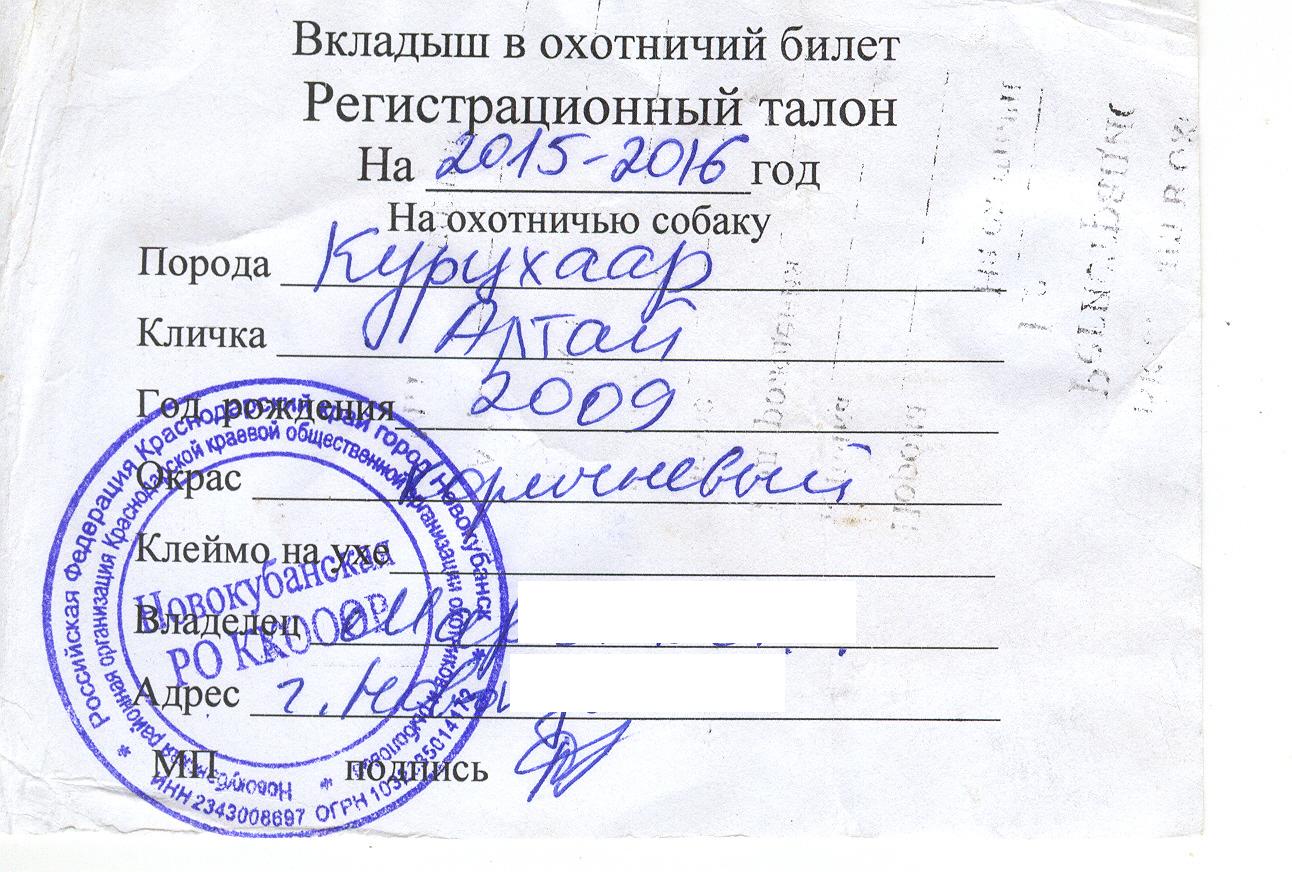 Вкладыш в охотничий билет
Регистрационный талон
На 2015-2016 год
На охотничью собаку
Порода Курухаар
Кличка Алтай
Год рождения 2009
Окрас Коричневый
Клеймо на ухе
Владелец
Адрес г.
МП подпись
Российская Федерация Краснодарский край город Новокубанск
районная организация Краснодарской краевой общественной организации охотников и рыболовов
Новокубанская
РО ККОООР
ИНН 2343008697 ОГРН